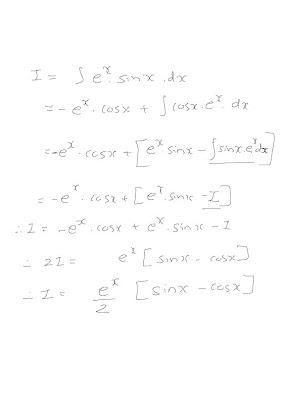 I = ∫ e^x. sinx .dx
= - e^x . cosx + ∫ cosx.e^x. dx
= -e^x . cosx + [e^x sinx - ∫sinx.e^x dx]
= - e^x . cosx + [e^x. sinx - I]
∴ I = - e^x. cosx + e^x. sinx - I
∴ 2I = e^x [sinx - cosx]
∴ I = e^x/2 [sinx - cosx]